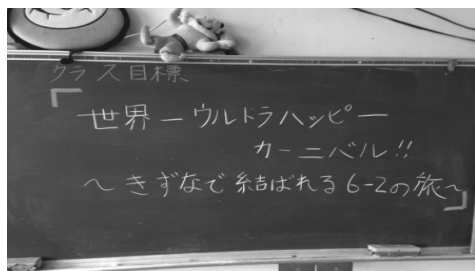 クラス目標
「世界一ウルトラハッピー
カーニバル!!
～きずなで結ばれる6-2の旅～」